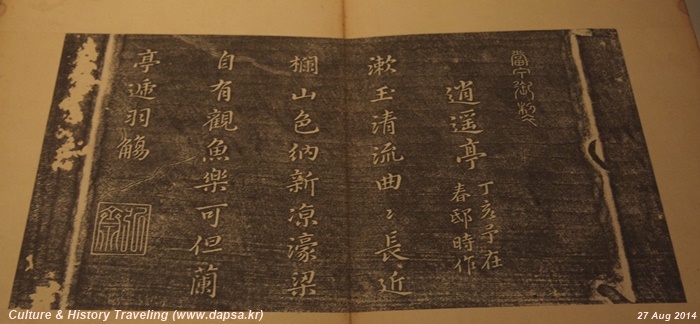 當宁御製
逍遥亭
丁亥予在
春邸時作
漱玉清流曲〻長近
欄山色納新凉濠梁
自有觀魚樂可但蘭
亭遞羽觴
Culture & History Traveling (www.dapsa.kr)
27 Aug 2014